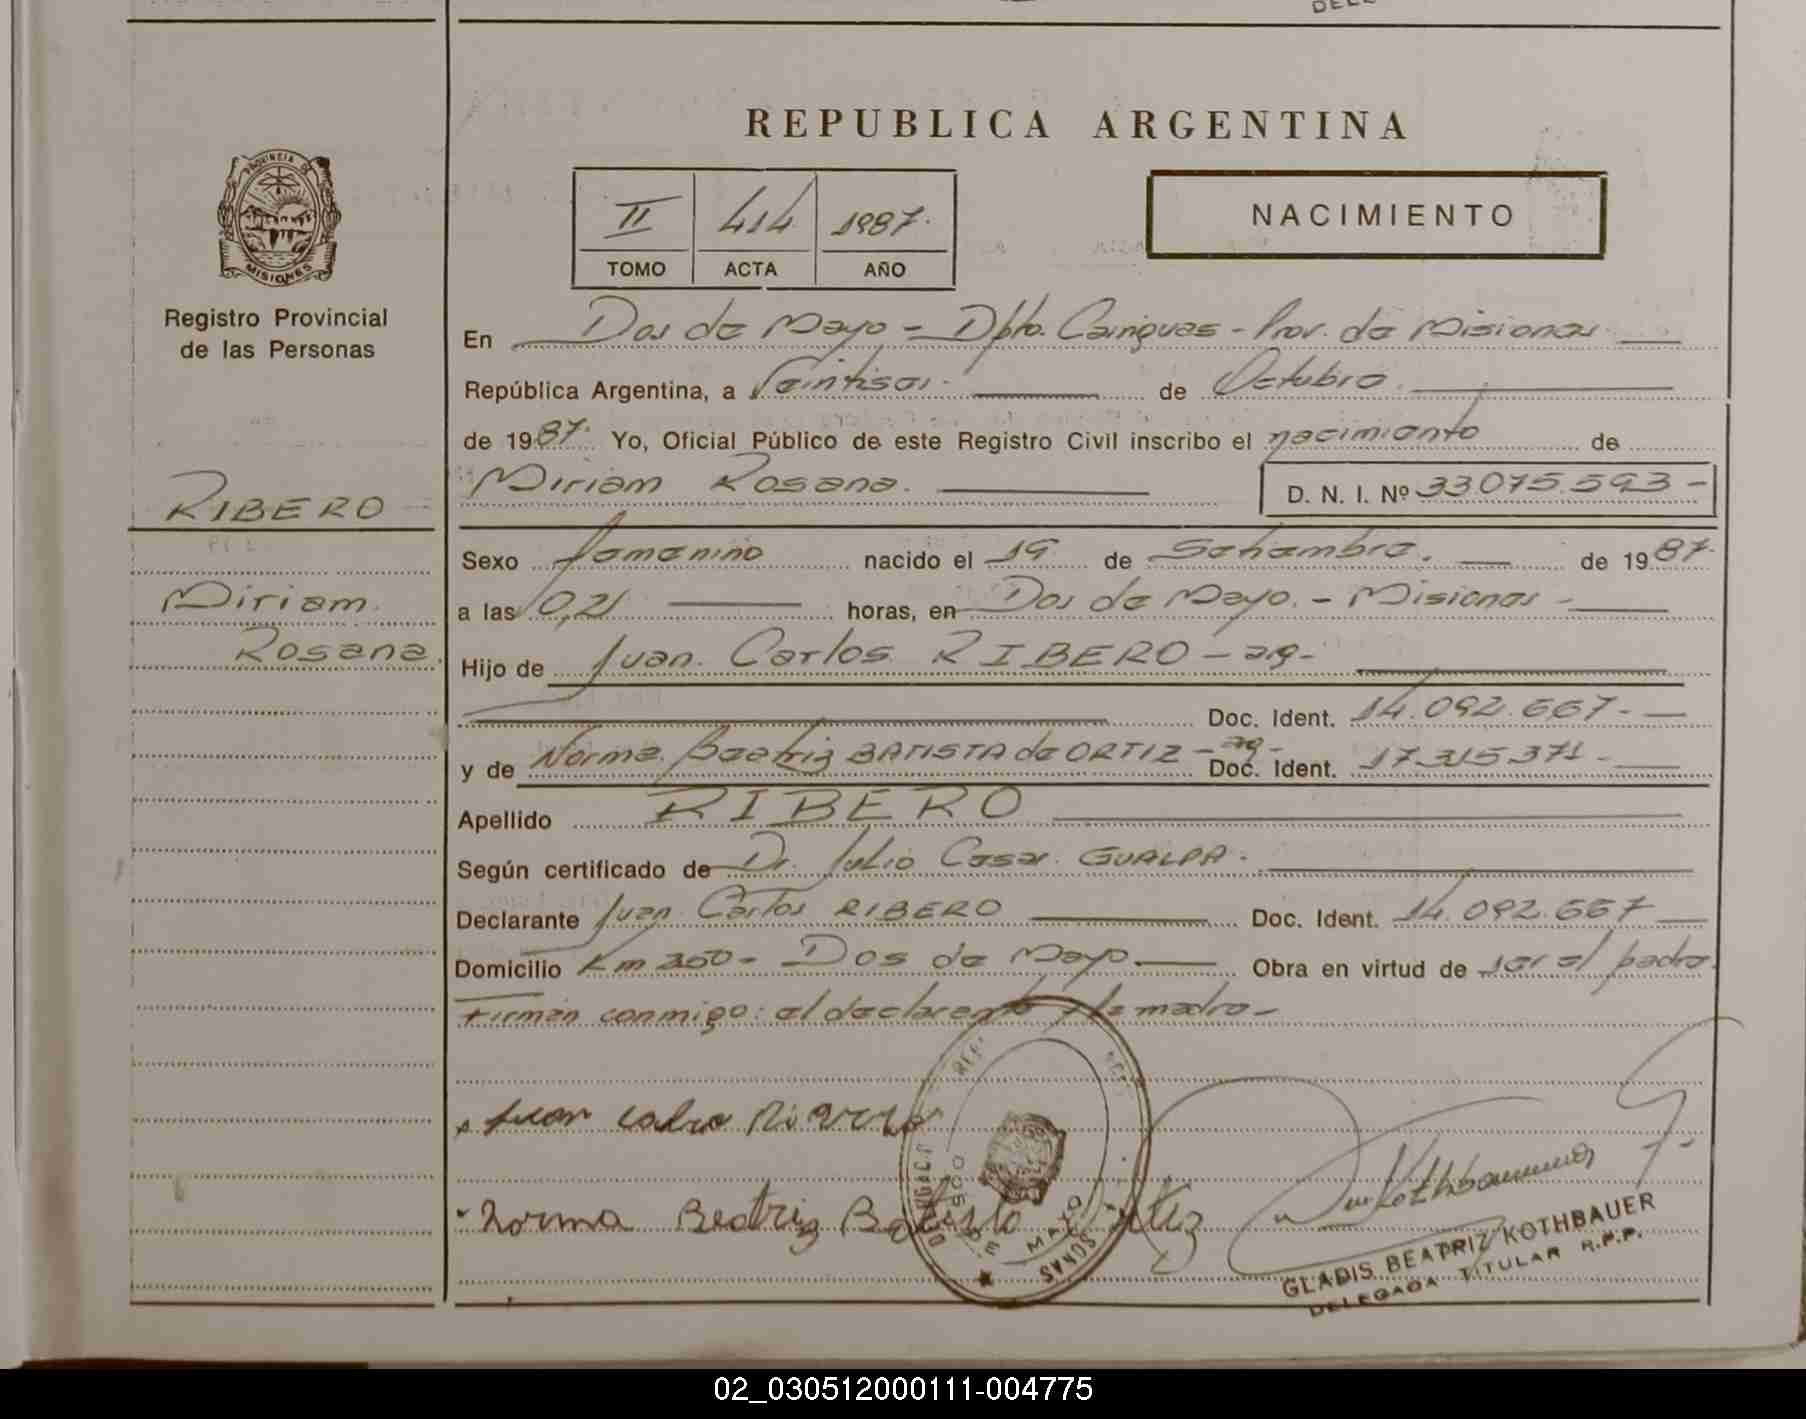 REPUBLICA ARGENTINA
PROVINCIA DE
MISIONES
Registro Provincial
de las Personas
II 414 1987.
TOMO ACTA AÑO
NACIMIENTO
En Dos de Mayo - Dpto. Cainguas - Prov. de Misiones
República Argentina, a Veintiseis. de Octubre.
de 1987. Yo, Oficial Público de este Registro Civil inscribo el nacimiento de
Miriam Rosana. D. N. I. Nº 33.075.593-
RIBERO
Miriam.
Rosana.
Sexo femenino nacido el 19 de Setiembre. de 1987.
a las 0,21 horas, en Dos de Mayo. - Misiones -
Hijo de Juan Carlos RIBERO - arg-
Doc. Ident. 14.092.667.-
y de Norma Beatriz BATISTA de ORTIZ - arg- Doc. Ident. 17.315.371-
Apellido RIBERO
Según certificado de Dr. Julio Cesar GUALPA.
Declarante Juan Carlos RIBERO Doc. Ident. 14.092.667
Domicilio Km 200 - Dos de Mayo. Obra en virtud de ser el padre.
Firman conmigo: el declarante y la madre-
Juan
Norma Beatriz Batista Ortiz
DOS DE MAYO
Kothbauer
GLADIS BEATRIZ KOTHBAUER
DELEGADA TITULAR R.P.P.
02_030512000111-004775